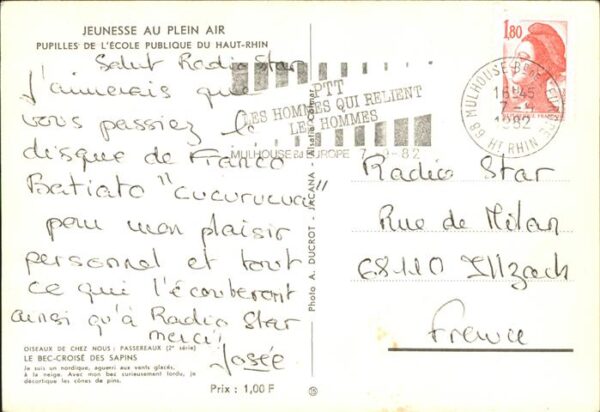 JEUNESSE AU PLEIN AIR
PUPILLES DE L'ÉCOLE PUBLIQUE DU HAUT-RHIN
Salut Radio Star
J'aimerais que
vous passiez le
disque de Franco
Batiato "cucurucucu"
pour mon plaisir
personnel et tout
ce qui l'écouteront
ainsi qu'à Radio Star
merci!
Josée
OISEAUX DE CHEZ NOUS : PASSEREAUX (2e série)
LE BEC-CROISÉ DES SAPINS
Je suis un nordique, aguerri aux vents glacés,
à la neige. Avec mon bec curieusement tordu, je
décortique les cônes de pins.
Prix : 1,00 F
Photo A. DUCROT - JACANA - Alsatia Colmar
PTT
LES HOMMES QUI RELIENT
LES HOMMES
MULHOUSE Bd EUROPE 7-82
1,80
68 MULHOUSE Bd de L'EUROPE
16H45
7-
1982
Ht RHIN
Radio Star
Rue de Milan
68110 Illzach
France